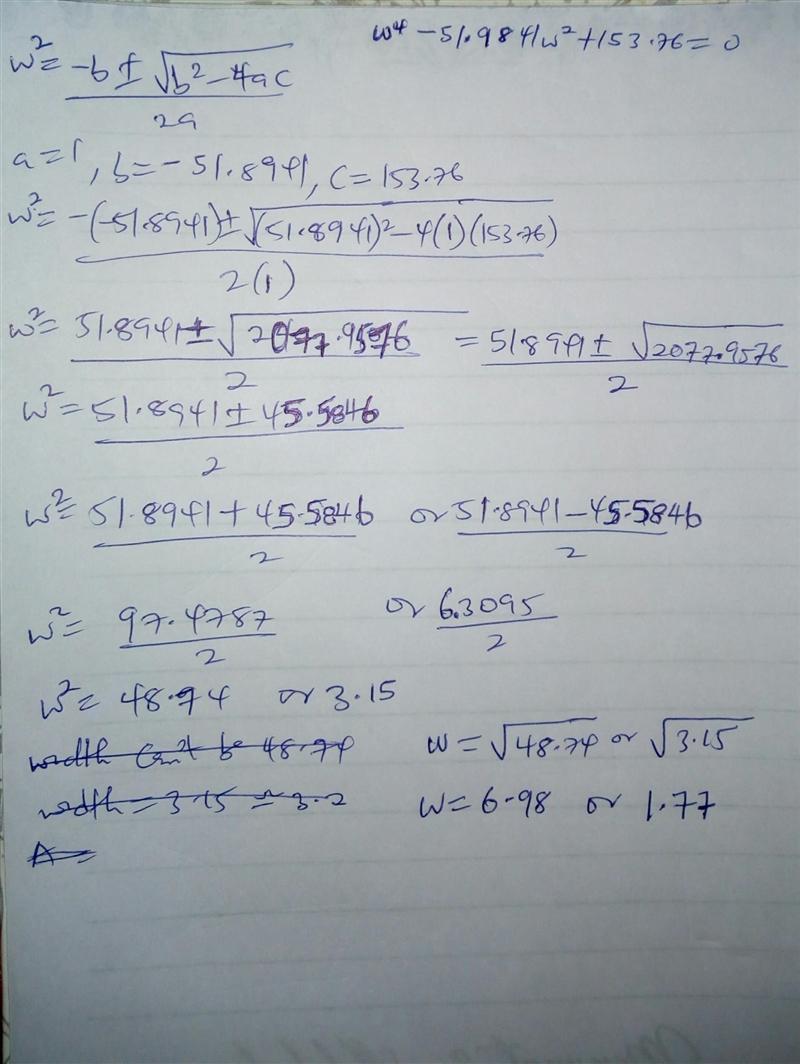 w⁴ - 51.9841w² + 153.76 = 0
w² = (-b ± √(b² - 4ac)) / 2a
a = 1, b = -51.8941, c = 153.76
w² = (-(-51.8941) ± √((51.8941)² - 4(1)(153.76))) / 2(1)
w² = (51.8941 ± √2077.9576) / 2 = (51.8941 ± √2077.9576) / 2
w² = (51.8941 ± 45.5846) / 2
w² = (51.8941 + 45.5846) / 2 or (51.8941 - 45.5846) / 2
w² = 97.4787 / 2 or 6.3095 / 2
w² = 48.74 or 3.15
width can't be 48.74 w = √48.74 or √3.15
width = 3.15 = 3.2 w = 6.98 or 1.77
A =